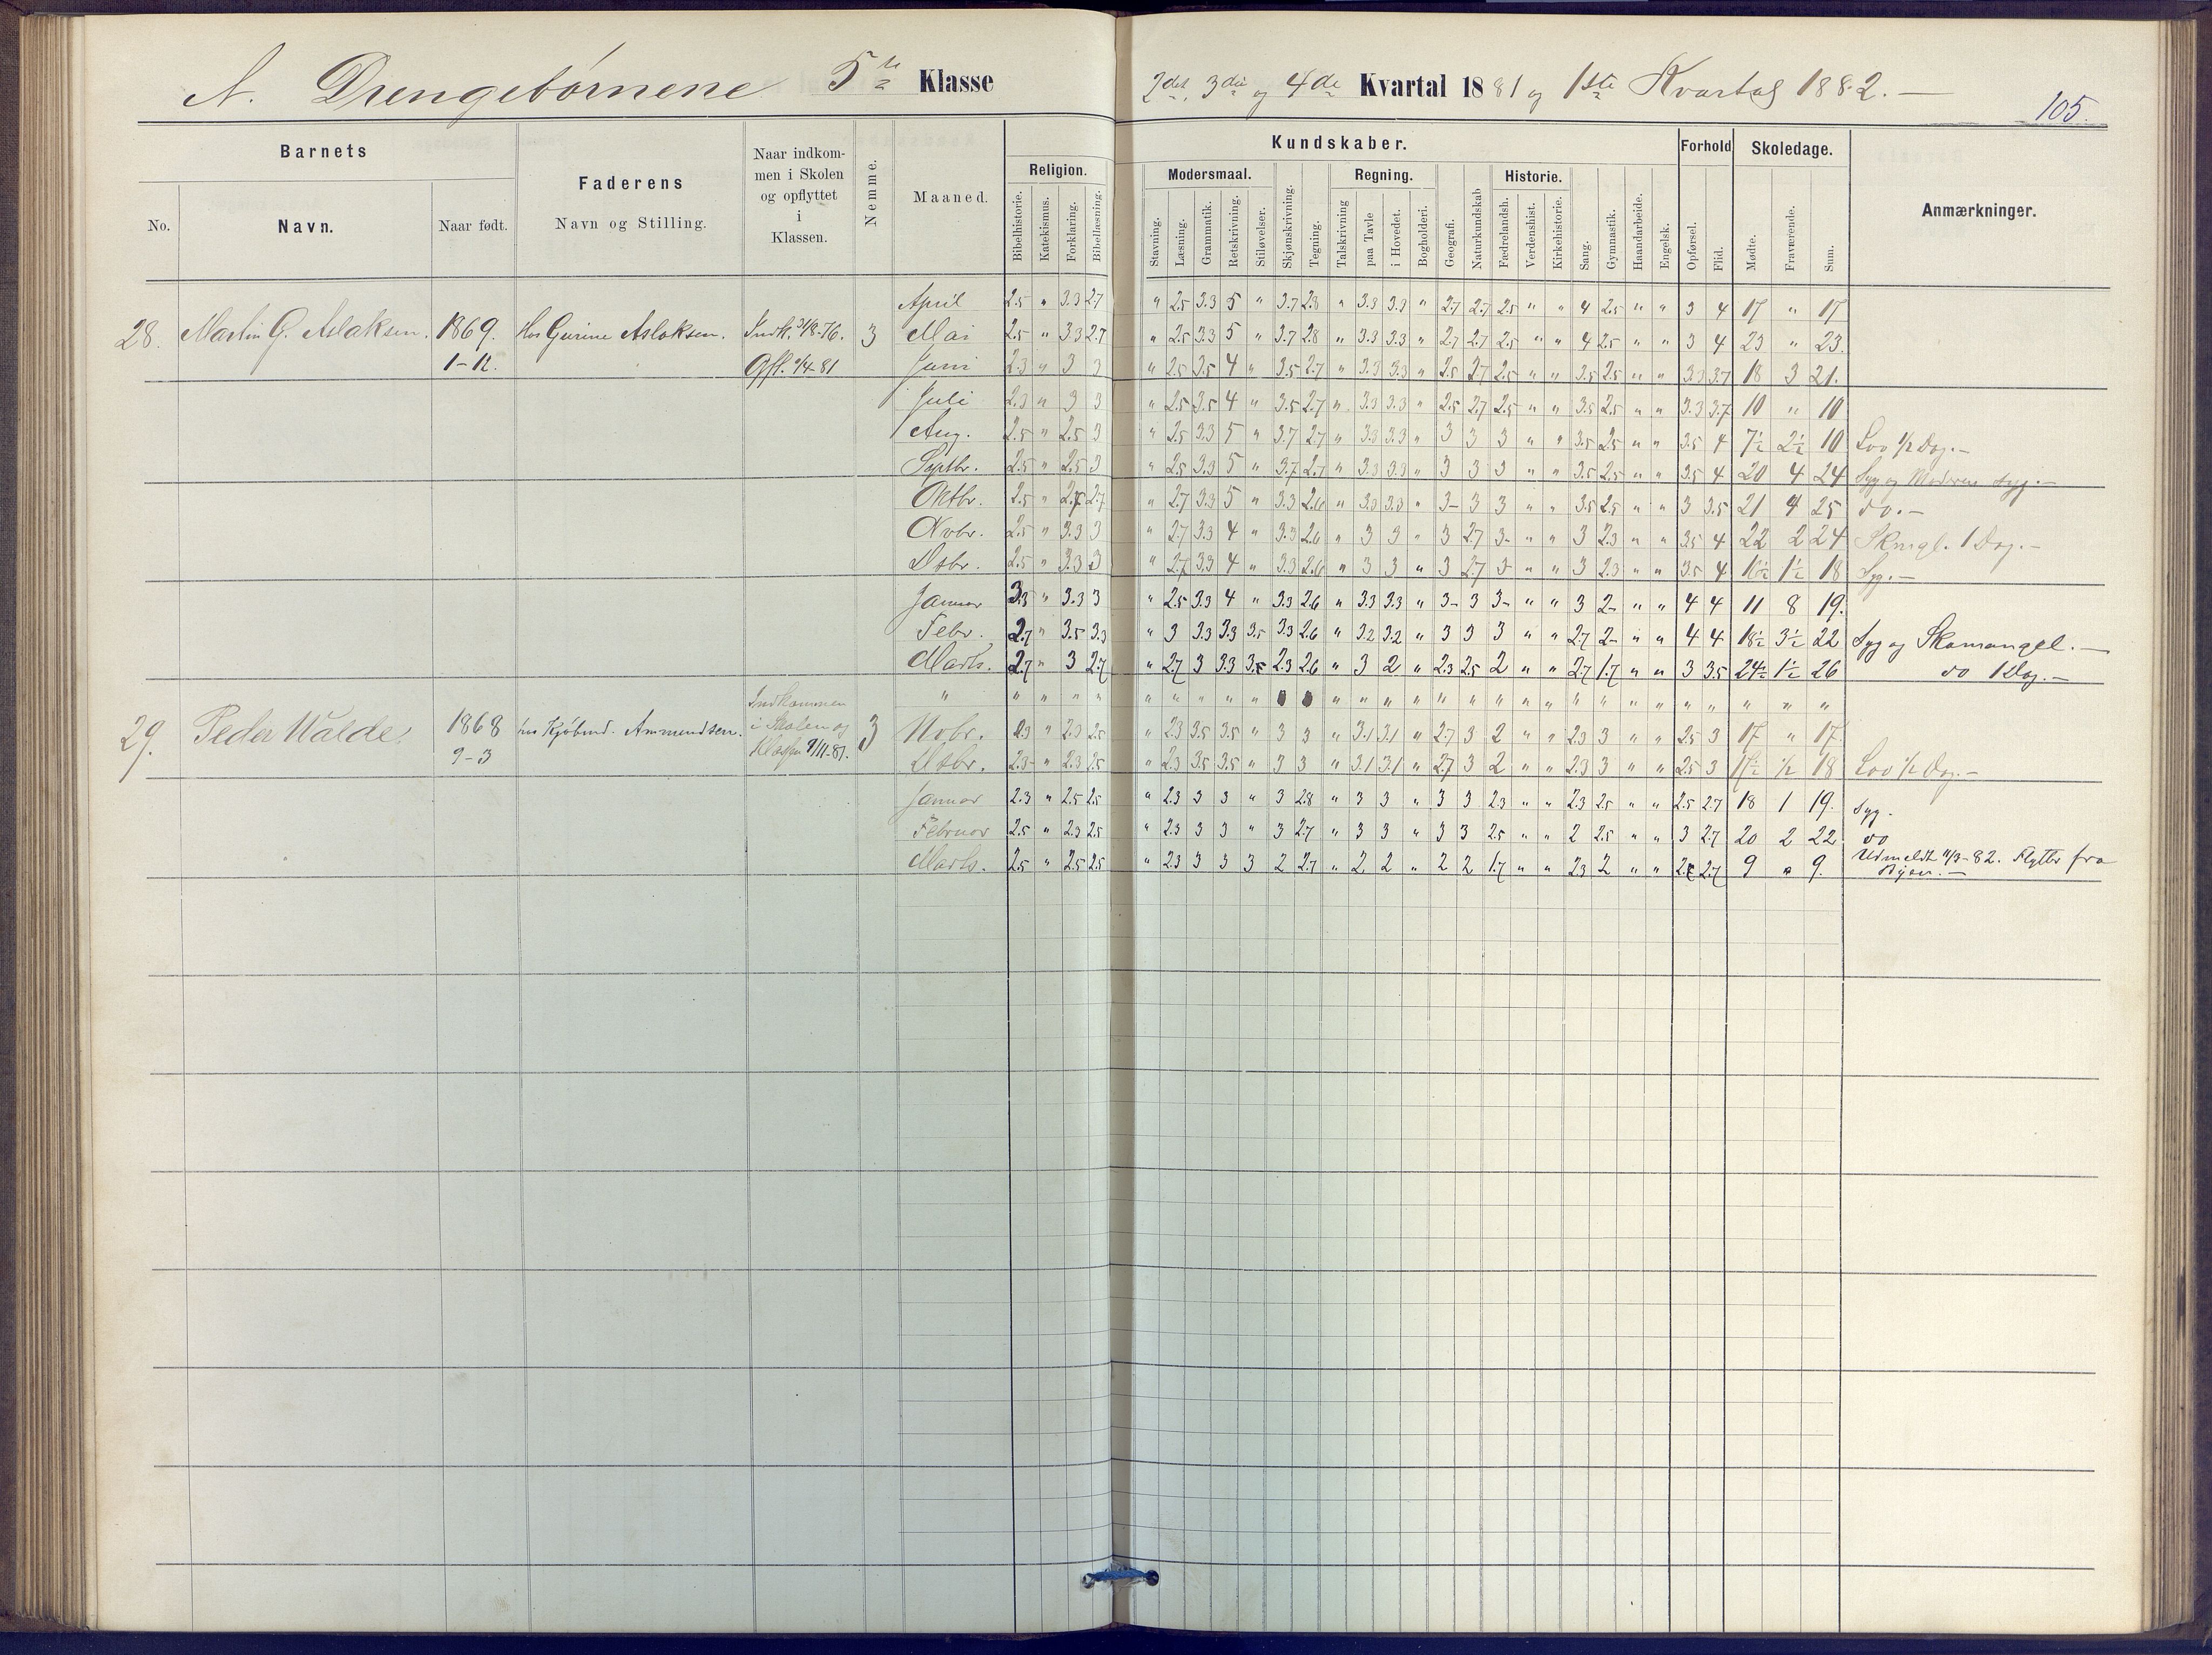 A. Drengebørnene 5te Klasse 2det, 3die og 4de Kvartal 1881 og 1ste Kvartal 1882. —
105.
Barnets
No.
Navn.
Naar født.
Faderens
Navn og Stilling.
Naar indkom-
men i Skolen
og opflyttet
i
Klassen.
Nemme.
Maaned.
Kundskaber.
Religion.
Bibelhistorie.
Katekismus.
Forklaring.
Bibellæsning.
Modersmaal.
Stavning.
Læsning.
Grammatik.
Retskrivning.
Stiløvelser.
Skjønskrivning.
Tegning.
Regning.
Talskrivning
paa Tavle
i Hovedet.
Bogholderi.
Geografi.
Naturkundskab
Historie.
Fædrelandsh.
Verdenshist.
Kirkehistorie.
Sang.
Gymnastik.
Haandarbeide.
Engelsk.
Forhold
Opførsel.
Flid.
Skoledage.
Mødte.
Fraværende.
Sum.
Anmærkninger.
April 2.5 " 3.3 2.7 " 2.5 3.3 5 " 3.7 2.8 " 3.3 3.3 " 2.7 2.7 2.5 " " 4 2.5 " " 3 4 17 " 17
28. Martin G. Aslaksen. 1869. Hos Gurine Aslaksen. 3 Mai 2.5 " 3.3 2.7 " 2.5 3.3 5 " 3.7 2.8 " 3.3 3.3 " 2.7 2.7 2.5 " " 4 2.5 " " 3 4 23 " 23.
1-12. Opfl. 81 Juni 2.3 " 3 3 " 2.5 3.5 4 " 3.5 2.7 " 3.3 3.3 " 2.5 2.7 2.5 " " 3.5 2.5 " " 3.3 3.7 18 3 21.
Juli 2.3 " 3 3 " 2.5 3.5 4 " 3.5 2.7 " 3.3 3.3 " 2.5 2.7 2.5 " " 3.5 2.5 " " 3.3 3.7 10 " 10
Aug. 2.5 " 2.5 3 " 2.5 3.3 5 " 3.7 2.7 " 3.3 3.3 " 3 3 3 " " 3.5 2.5 " " 3.5 4 7½ 2½ 10 Lov ½ Dag. —
Septbr. 2.5 " 2.5 3 " 2.5 3.3 5 " 3.7 2.7 " 3.3 3.3 " 3 3 3 " " 3.5 2.5 " " 3.5 4 20 4 24 Syg og Moderen syg. —
Oktbr. 2.5 " 2.7 2.7 " 2.7 3.3 5 " 3.3 2.6 " 3.3 3.3 " 3- 3 3 " " 3.5 2.5 " " 3 3.5 21 4 25 do. —
Novbr. 2.5 " 3.3 3 " 2.7 3.3 4 " 3.3 2.6 " 3 3 " 3 2.7 3- " " 3 2.3 " " 3.5 4 22 2 24 Skmgl. 1 Dag. —
Dsbr. 2.5 " 3.3 3 " 2.7 3.3 4 " 3.3 2.6 " 3 3 " 3 2.7 3 " " 3 2.3 " " 3.5 4 16½ 1½ 18 Syg. —
Januar 3.3 " 3.3 3 " 2.5 3.3 4 " 3.3 2.6 " 3.3 3.3 " 3- 3 3- " " 3 2- " " 4 4 11 8 19.
Febr. 2.7 " 3.5 3.3 " 3 3.3 3.3 3.5 3.3 2.6 " 3.2 3.2 " 3 3 3 " " 2.7 2- " " 4 4 18½ 3½ 22 Syg og Skomangel. —
Marts. 2.7 " 3 2.7 " 2.7 3 3.3 3.5 2.3 2.6 " 3 2 " 2.3 2.5 2 " " 2.7 1.7 " " 3 3.5 24½ 1½ 26 do 1 Dag. —
Indkommen
29. Peder Walde. 1868 hos Kjøbmd. Ammundsen. i Skolen og 3 Nobr. 2.3 " 2.3 2.5 " 2.3 3.5 3.5 " 3 3 " 3.1 3.1 " 2.7 3 2 " " 2.3 3 " " 2.5 3 17 " 17.
9-3 Klassen 9/11-81. Dsbr. 2.3 " 2.3 2.5 " 2.3 3.5 3.5 " 3 3 " 3.1 3.1 " 2.7 3 2 " " 2.3 3 " " 2.5 3 17½ ½ 18 Lov ½ Dag. —
Januar 2.3 " 2.5 2.5 " 2.3 3 3 " 3 2.8 " 3 3 " 3 3 2.3 " " 2.3 2.5 " " 2.5 2.7 18 1 19. Syg.
Februar 2.5 " 2.3 2.5 " 2.3 3 3 " 3 2.7 " 3 3 " 3 3 2.5 " " 2 2.5 " " 3 2.7 20 2 22 do
Marts. 2.5 " 2.5 2.5 " 2.3 3 3 3 2 2.7 " 2 2 " 2 2 1.7 " " 2.3 2 " " 2.7 9 " 9. Udmeldt 11/3-82. Flytter fra
Byen. —